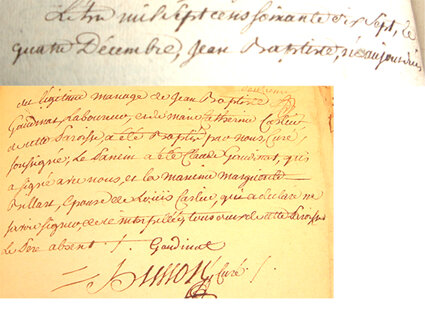 L'an mil Sept cens soixante dix Sept, le
quatre Décembre, Jean Baptiste, né aujourd'hui
du légitime mariage de Jean Baptiste
Gaudinat, Laboureur, et de marie Catherine Carlier
de cette Paroisse a été Baptisé par nous, Curé
soussigné; Le Parein a été Claude Gaudinat, qui
a signé avec nous, et la mareine marguerite
Billart, épouse de Louis Carlier qui a déclaré ne
savoir signer, de ce interpellés, tous deux de cette Paroisse
Le Père absent ./. Gaudinat
Curé ./.